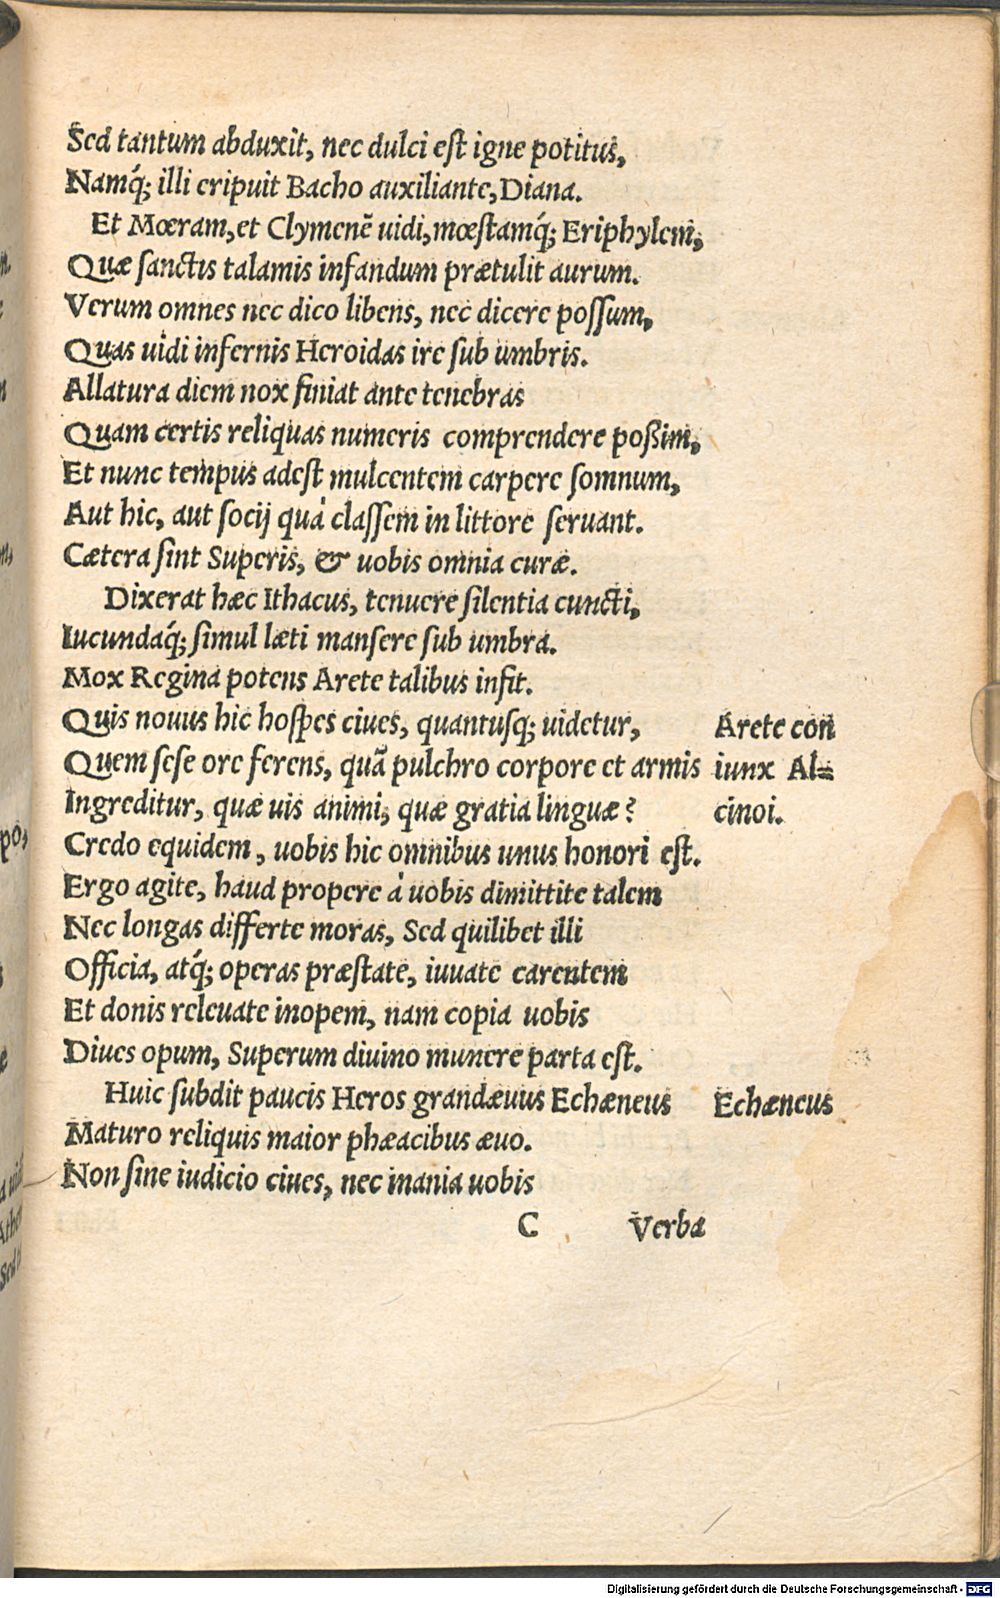 Sed tantum abduxit, nec dulci est igne potitus,
Namq́; illi eripuit Bacho auxiliante, Diana.
Et Mœram, et Clymenē uidi, mœstamq́; Eriphylem,
Quæ sanctis talamis infandum prætulit aurum.
Verum omnes nec dico libens, nec dicere possum,
Quas uidi infernis Heroidas ire sub umbris.
Allatura diem nox finiat ante tenebras
Quam certis reliquas numeris comprendere poßim,
Et nunc tempus adest mulcentem carpere somnum,
Aut hic, aut socij quà classem in littore seruant.
Cætera sint Superis, & uobis omnia curæ.
Dixerat hæc Ithacus, tenuere silentia cuncti,
Iucundaq́; simul læti mansere sub umbra.
Mox Regina potens Arete talibus infit.
Quis nouus hic hospes ciues, quantusq; uidetur,
Quem sese ore ferens, quā pulchro corpore et armis
Ingreditur, quæ uis animi, quæ gratia linguæ?
Arete con
iunx Al=
cinoi.
Credo equidem, uobis hic omnibus unus honori est.
Ergo agite, haud propere à uobis dimittite talem
Nec longas differte moras, Sed quilibet illi
Officia, atq́; operas præstate, iuuate carentem
Et donis releuate inopem, nam copia uobis
Diues opum, Superum diuino munere parta est.
Huic subdit paucis Heros grandæuus Echæneus
Echæneus
Maturo reliquis maior phæacibus æuo.
Non sine iudicio ciues, nec inania uobis
C Verba
Digitalisierung gefördert durch die Deutsche Forschungsgemeinschaft - DFG